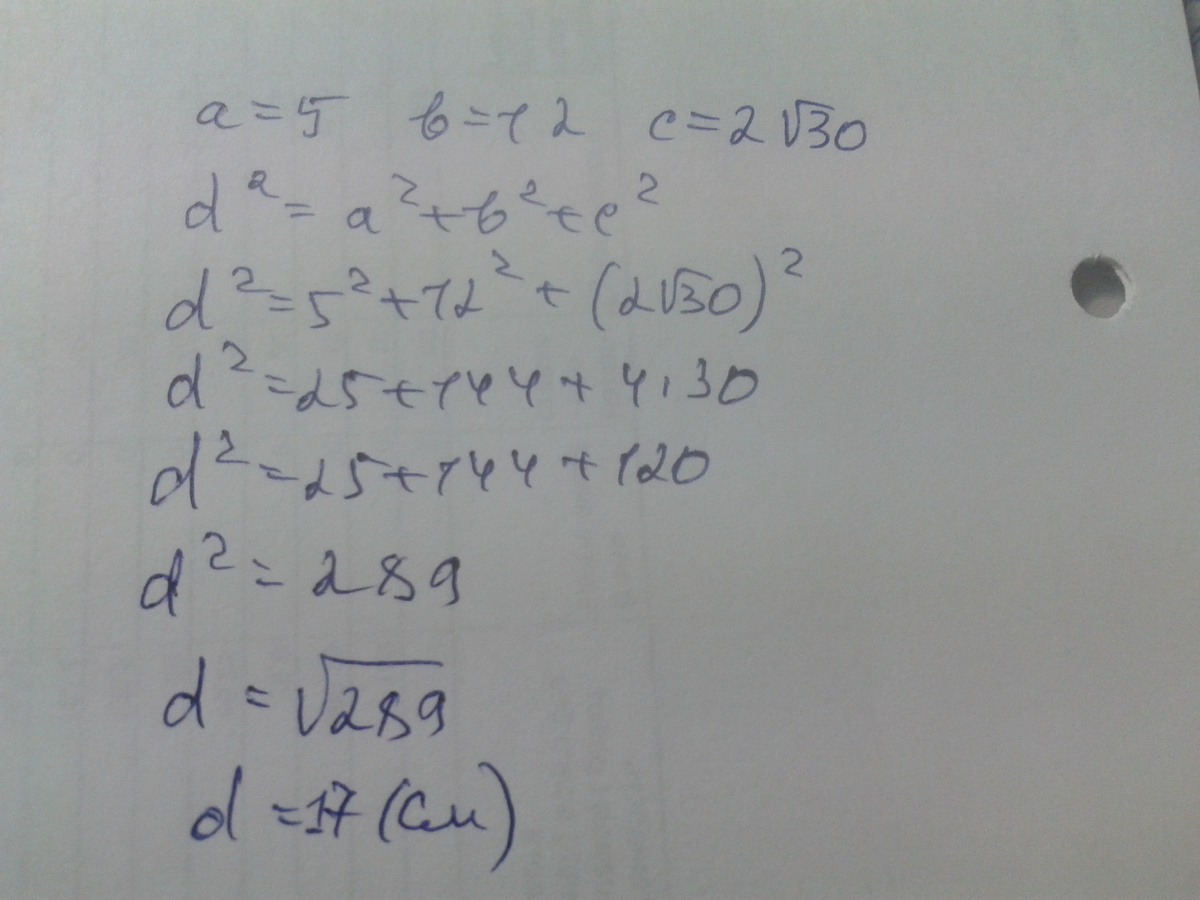 a = 5 b = 12 c = 2√30
d² = a² + b² + c²
d² = 5² + 12² + (2√30)²
d² = 25 + 144 + 4·30
d² = 25 + 144 + 120
d² = 289
d = √289
d = 17 (см)